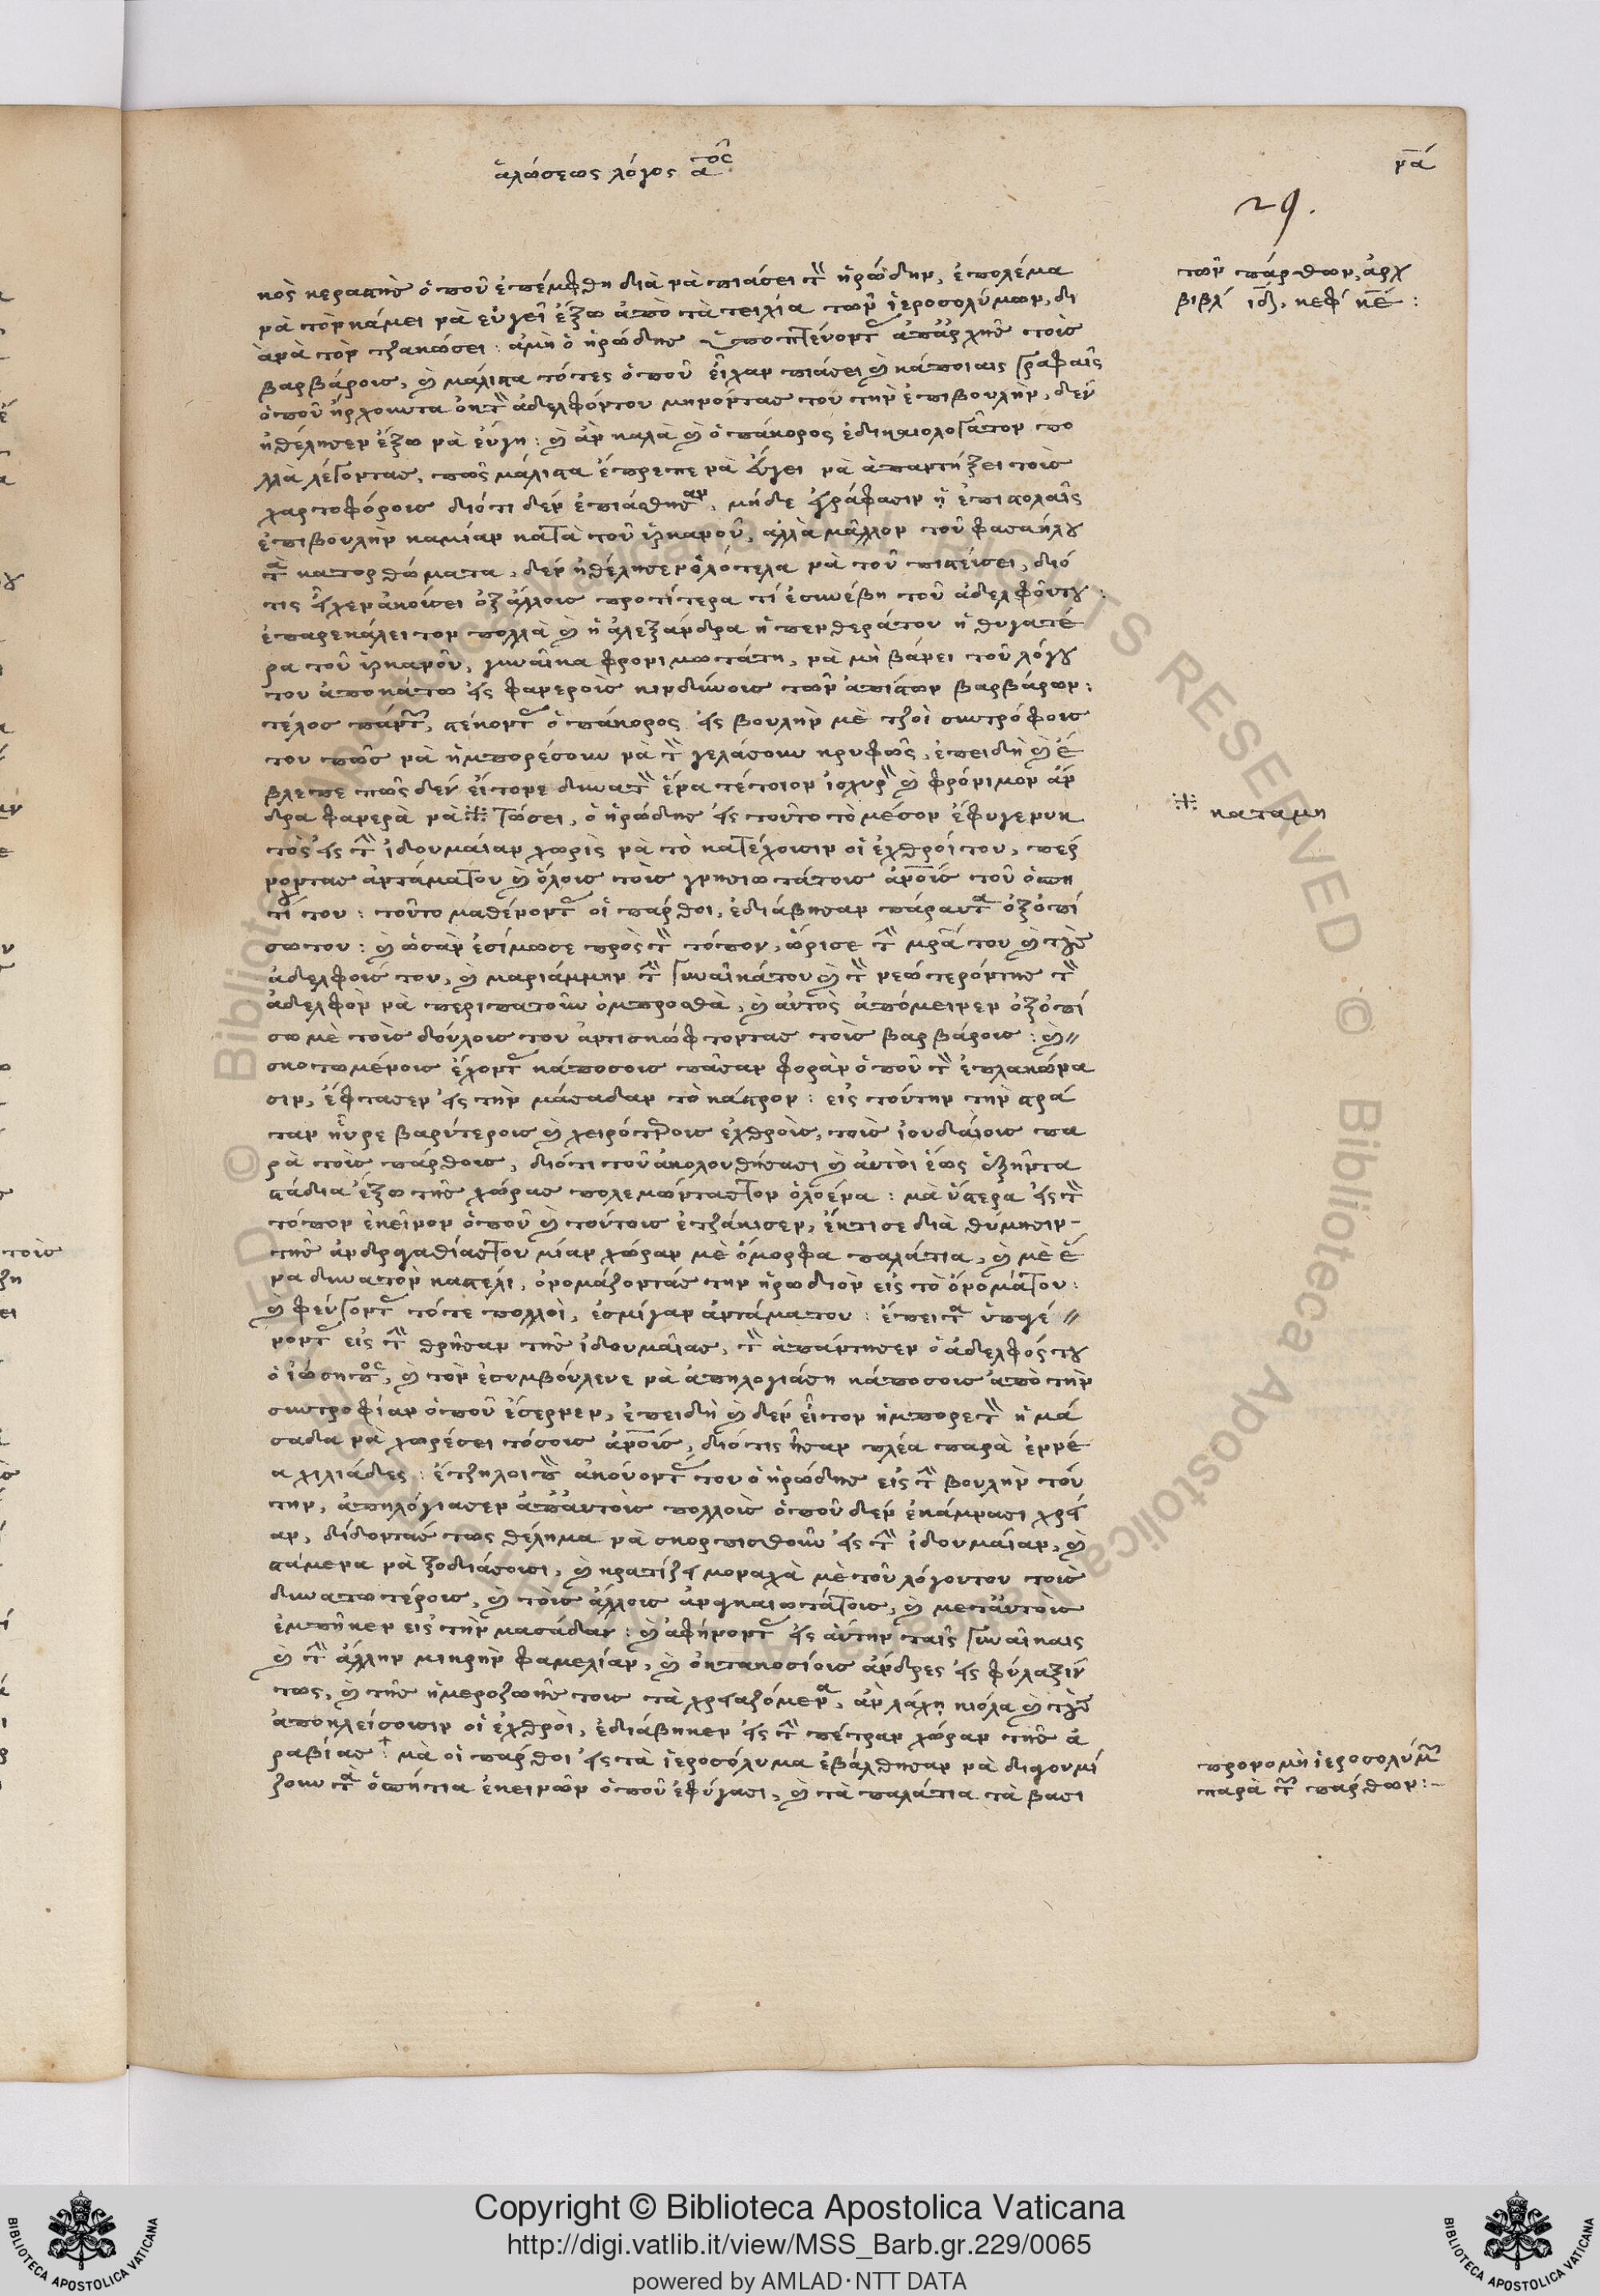 ἁλώσεως λόγος α^τος
να
29.
νὸς κεραστὴς ὁποῦ ἐπέμφθη διὰ νὰ πιάσει τὸν ἡρώδην, ἐπολέμα
νὰ τὸν κάμει νὰ εὐγεῖ ἔξω ἀπὸ τὰ τειχία τῶν ἱεροσολύμων, δι
ὰ νὰ τὸν τζακώσει: ἀμὴ ὁ ἡρώδης ὑποπτεύοντας ἀπαρχῆς τοὶς
βαρβάροις, καὶ μάλιστα τότες ὁποῦ εἶχαν πιάσει καὶ κάποιαις γραφαῖς
ὁποῦ ἤρχουντα ἐκ τὸν ἀδελφόντου μηνόντας του τὴν ἐπιβουλὴν, δὲν
ἠθέλησεν ἔξω νὰ εὔγη: καὶ ἂν καλὰ καὶ ὁ πάκορος ἐδικαιολογάτον πο
λλὰ λέγοντας, πῶς μάλιστα ἔπρεπε νὰ εὔγει νὰ ἀπαντήξει τοὶς
χαρτοφόροις διότι δὲν ἐπιάσθησαν, μήδε ἐγράφασιν ᾑ ἐπιστολαῖς
ἐπιβουλὴν καμίαν κατὰ τοῦ ὑρκανοῦ, ἀλλὰ μᾶλλον τοῦ φασαήλου
τὰ κατορθώματα, δὲν ἠθέλησεν ὁλότελα νὰ τοῦ πιστεύσει, διό
τις εἶχεν ἀκούσει ὀξ ἄλλοις προτίτερα τί ἐσυνέβη τοῦ ἀδελφόντου:
ἐπαρεκάλει τον πολλὰ καὶ ἡ ἀλεξάνδρα ἡ πενθεράτου ἡ θυγατέ
ρα τοῦ ὑρκανοῦ, γυναῖκα φρονιμωτάτη, νὰ μὴ βάνει τοῦ λόγου
του ἀποκάτω εἰς φανεροὶς κινδύνοις τῶν ἀπίστων βαρβάρων:
τέλος πάντων, στέκοντας ὁ πάκορος εἰς βουλὴν μὲ τζοὶ συντρόφοις
του πῶς νὰ ἠμπορέσουν νὰ τὸν γελάσουν κρυφῶς, ἐπειδὴ καὶ ἔ
βλεπε πῶς δὲν εἴτονε δυνατὸν ἕνα τέτοιον ἰσχυρὸν καὶ φρόνιμον ἄν
δρα φανερὰ νὰ ※ γώσει, ὁ ἡρώδης εἰς τοῦτο τὸ μέσον ἔφυγε νυκ
τὸς εἰς τὴν ἰδουμαίαν χωρὶς νὰ τὸ κατέχουσιν οἱ ἐχθροί του, πέρ
νοντας ἀντάματου καὶ ὅλοις τοὶς γνησιωτάτοις ἀνοις τοῦ ὁσπη
τίου του: τοῦτο μαθένοντας οἱ πάρθοι, ἐδιάβησαν πάραυτα ὀξοπί
σωτου: καὶ ὡσὰν ἐσίμωσε πρὸς τὸν τόπον, ὥρισε τὴν μρα του καὶ τοὺς
ἀδελφοίς του, καὶ μαριάμμην τὴν γυναῖκάτου καὶ τὸν νεώτερόντης τὸν
ἀδελφὸν νὰ περιπατοῦν ὀμπροσθὰ, καὶ αὐτὸς ἀπόμεινεν ὀξοπί
σω μὲ τοὶς δούλοις του ἀντισκώφτοντας τοὶς βαρβάροις: καὶ
σκοτωμένοις ἔχοντας κάποσοις πᾶσαν φορὰν ὁποῦ τὸν ἐπλακώνα
σιν, ἔφτασεν εἰς τὴν μάσαδαν τὸ κάστρον: εἰς τούτην τὴν στρά
ταν ηὗρε βαρύτεροις καὶ χειρότεροις ἐχθροὶς, τοὶς ἰουδαίοις πα
ρὰ τοὶς πάρθοις, διότι τοῦ ἀκολουθήσασι καὶ αὐτοὶ ἕως ἑξῆντα
στάδια ἔξω τῆς χώρας πολεμῶντας τον ὁλοένα: μὰ ὕστερα εἰς τὸν
τόπον ἐκεῖνον ὁποῦ καὶ τούτοις ἐτζάκισεν, ἔκτισε διὰ θύμησιν
τῆς ἀνδραγαθίας του μίαν χώραν μὲ ὄμορφα παλάτια, καὶ μὲ ἕ
να δυνατὸν καστέλι, ὀνομάζοντάς την ἡρωδιὸν εἰς τὸ ὄνομάτου:
καὶ φεύγοντας τότε πολλοὶ, ἐσμίγαν ἀντάματου: ἔπειτα ὑπαγέ
νοντας εἰς τὴν θρῆσαν τῆς ἰδουμαίας, τὸν ἀπάντησεν ὁ ἀδελφός του
ὁ ἰώσηπος, καὶ τὸν ἐσυμβούλευε νὰ ἀπηλογιάση κάποσοις ἀπὸ τὴν
συντροφίαν ὁποῦ ἔσερνεν, ἐπειδὴ καὶ δὲν εἶτον ἠμπορετὸν ἡ μά
σαδα νὰ χωρέσει τόσοις ἀνοις, διότις ἦσαν πλέα παρὰ ἐννέ
α χιλιάδες: ἔτζηλοιπὸν ἀκούοντας του ὁ ἡρώδης εἰς τὴν βουλὴν τού
την, ἀπηλόγιασεν ἀπαυτοὶς πολλοὶς ὁποῦ δὲν ἐκάμνασι χρεί
αν, δίδοντάς τως θέλημα νὰ σκορπισθοῦν εἰς τὴν ἰδουμαίαν, καὶ
στάμενα νὰ ξοδιάσουσι, καὶ κρατίζει μοναχὰ μὲ τοῦ λόγουτου τοὶς
δυνατωτέροις, καὶ τοὶς ἄλλοις ἀναγκαιωτάτοις, καὶ μεταυτοὶς
ἐμπῆκεν εἰς τὴν μασάδαν: καὶ ἀφήνοντας εἰς αὐτὴν ταῖς γυναῖκαις
καὶ τὴν ἄλλην μικρὴν φαμελίαν, καὶ ὀκτακοσίοις ἄνδρες εἰς φύλαξίν
τως, καὶ τῆς ἡμεροζωῆς τοις τὰ χρειαζόμενα, ἂν λάχῃ κιόλα καὶ τοὺς
ἀποκλείσουσιν οἱ ἐχθροὶ, ἐδιάβηκεν εἰς τὴν πέτραν χώραν τῆς ἀ
ραβίας: μὰ οἱ πάρθοι εἰς τὰ ἱεροσόλυμα ἐβάλθησαν νὰ διαγουμί
ζουν τὰ ὁσπήτια ἐκεινῶν ὁποῦ ἐφύγασι, καὶ τὰ παλάτια τὰ βασι
τῶν πάρθων, ἀρχ
βιβλ ιδ, κεφ κε:
※ καταμη
προνομὴ ἱεροσολύμων
παρὰ τῶν πάρθων:
Copyright © Biblioteca Apostolica Vaticana
http://digi.vatlib.it/view/MSS_Barb.gr.229/0065
powered by AMLAD·NTT DATA